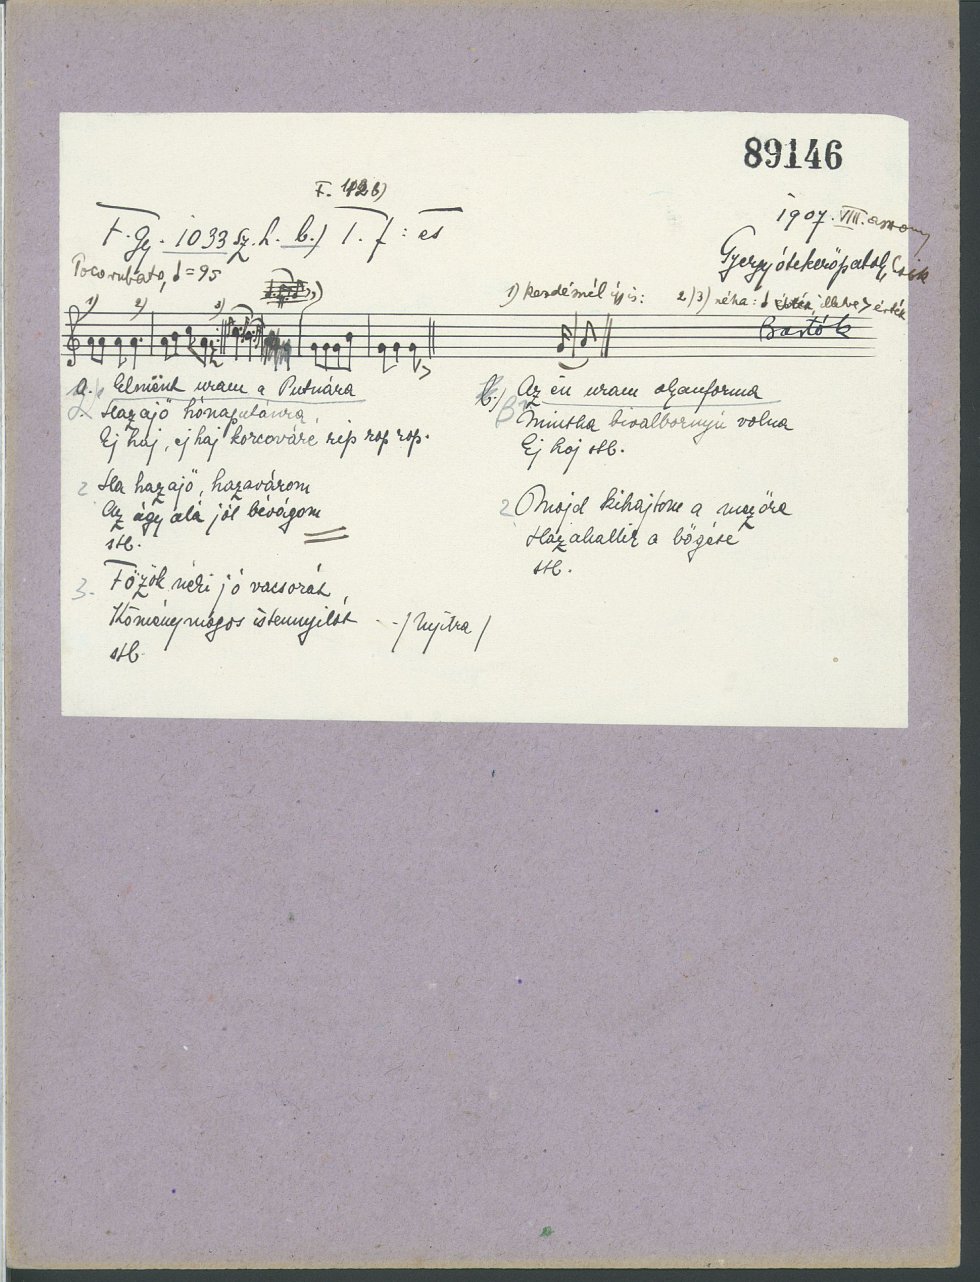 89146
F. 1126)
F. Gy. 1033 sz. h. b.) T. f: es
1907. VIII. asszony
Gyergyótekerőpatak, Csík
Poco rubato, ♩ = 95
1) kezdésnél így is: 2) 3) néha: ♩ illetve > érték
Bartók
1) 2) 3)
a. Elmënt uram a Putnára
Hazajő hónaputánra
Ej haj, ej haj korcováré rip rop rop.
2 Ha hazajő, hazavárom
Az ágy alá jól bévágom
stb.
3. Főzök néki jó vacsorát
Köménymagos istennyilát
stb. (Nyitra)
b.) Az én uram olyanforma
Mintha bivalbornyú volna
Ej haj stb.
2 Majd kihajtom a mezőre
Hazahallik a bőgése
stb.